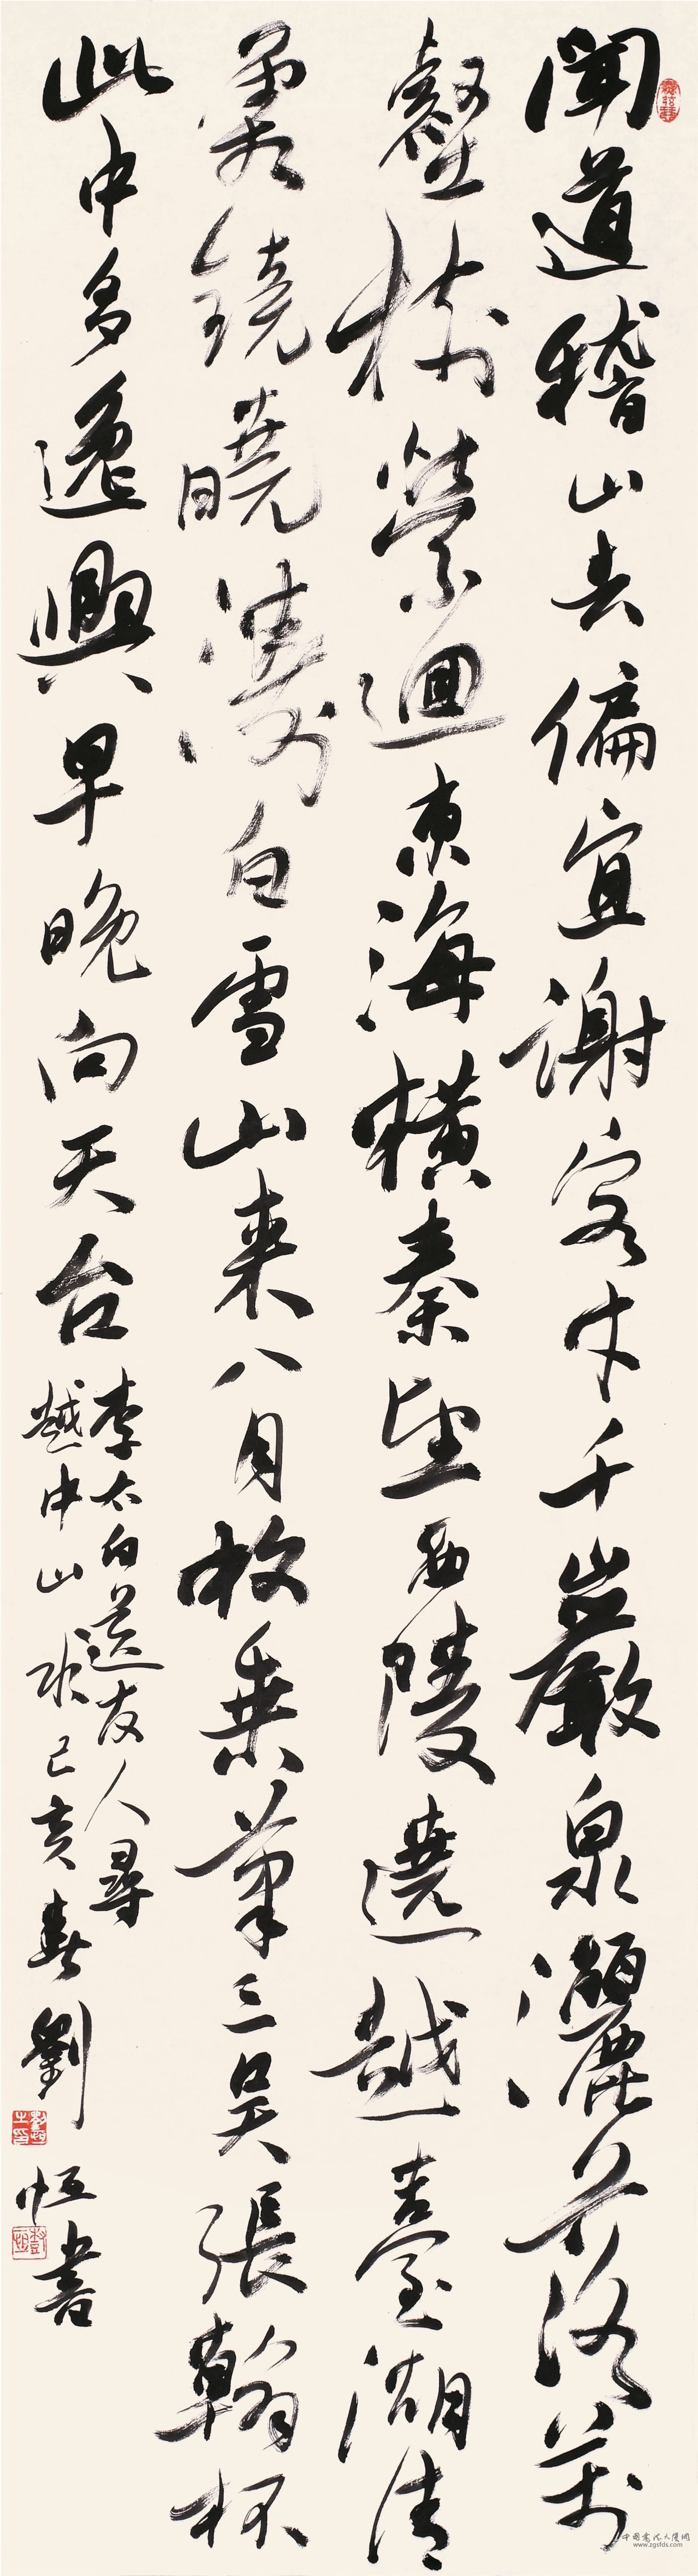 聞道稽山去偏宜謝客才千巖泉灑落萬
壑樹縈迴東海橫秦望西陵遶越臺湖清
霜鏡曉濤白雪山來八月枚乘筆三吳張翰杯
此中多逸興早晚向天台
李太白送友人尋
越中山水己亥春劉恒書
www.zgsfds.com